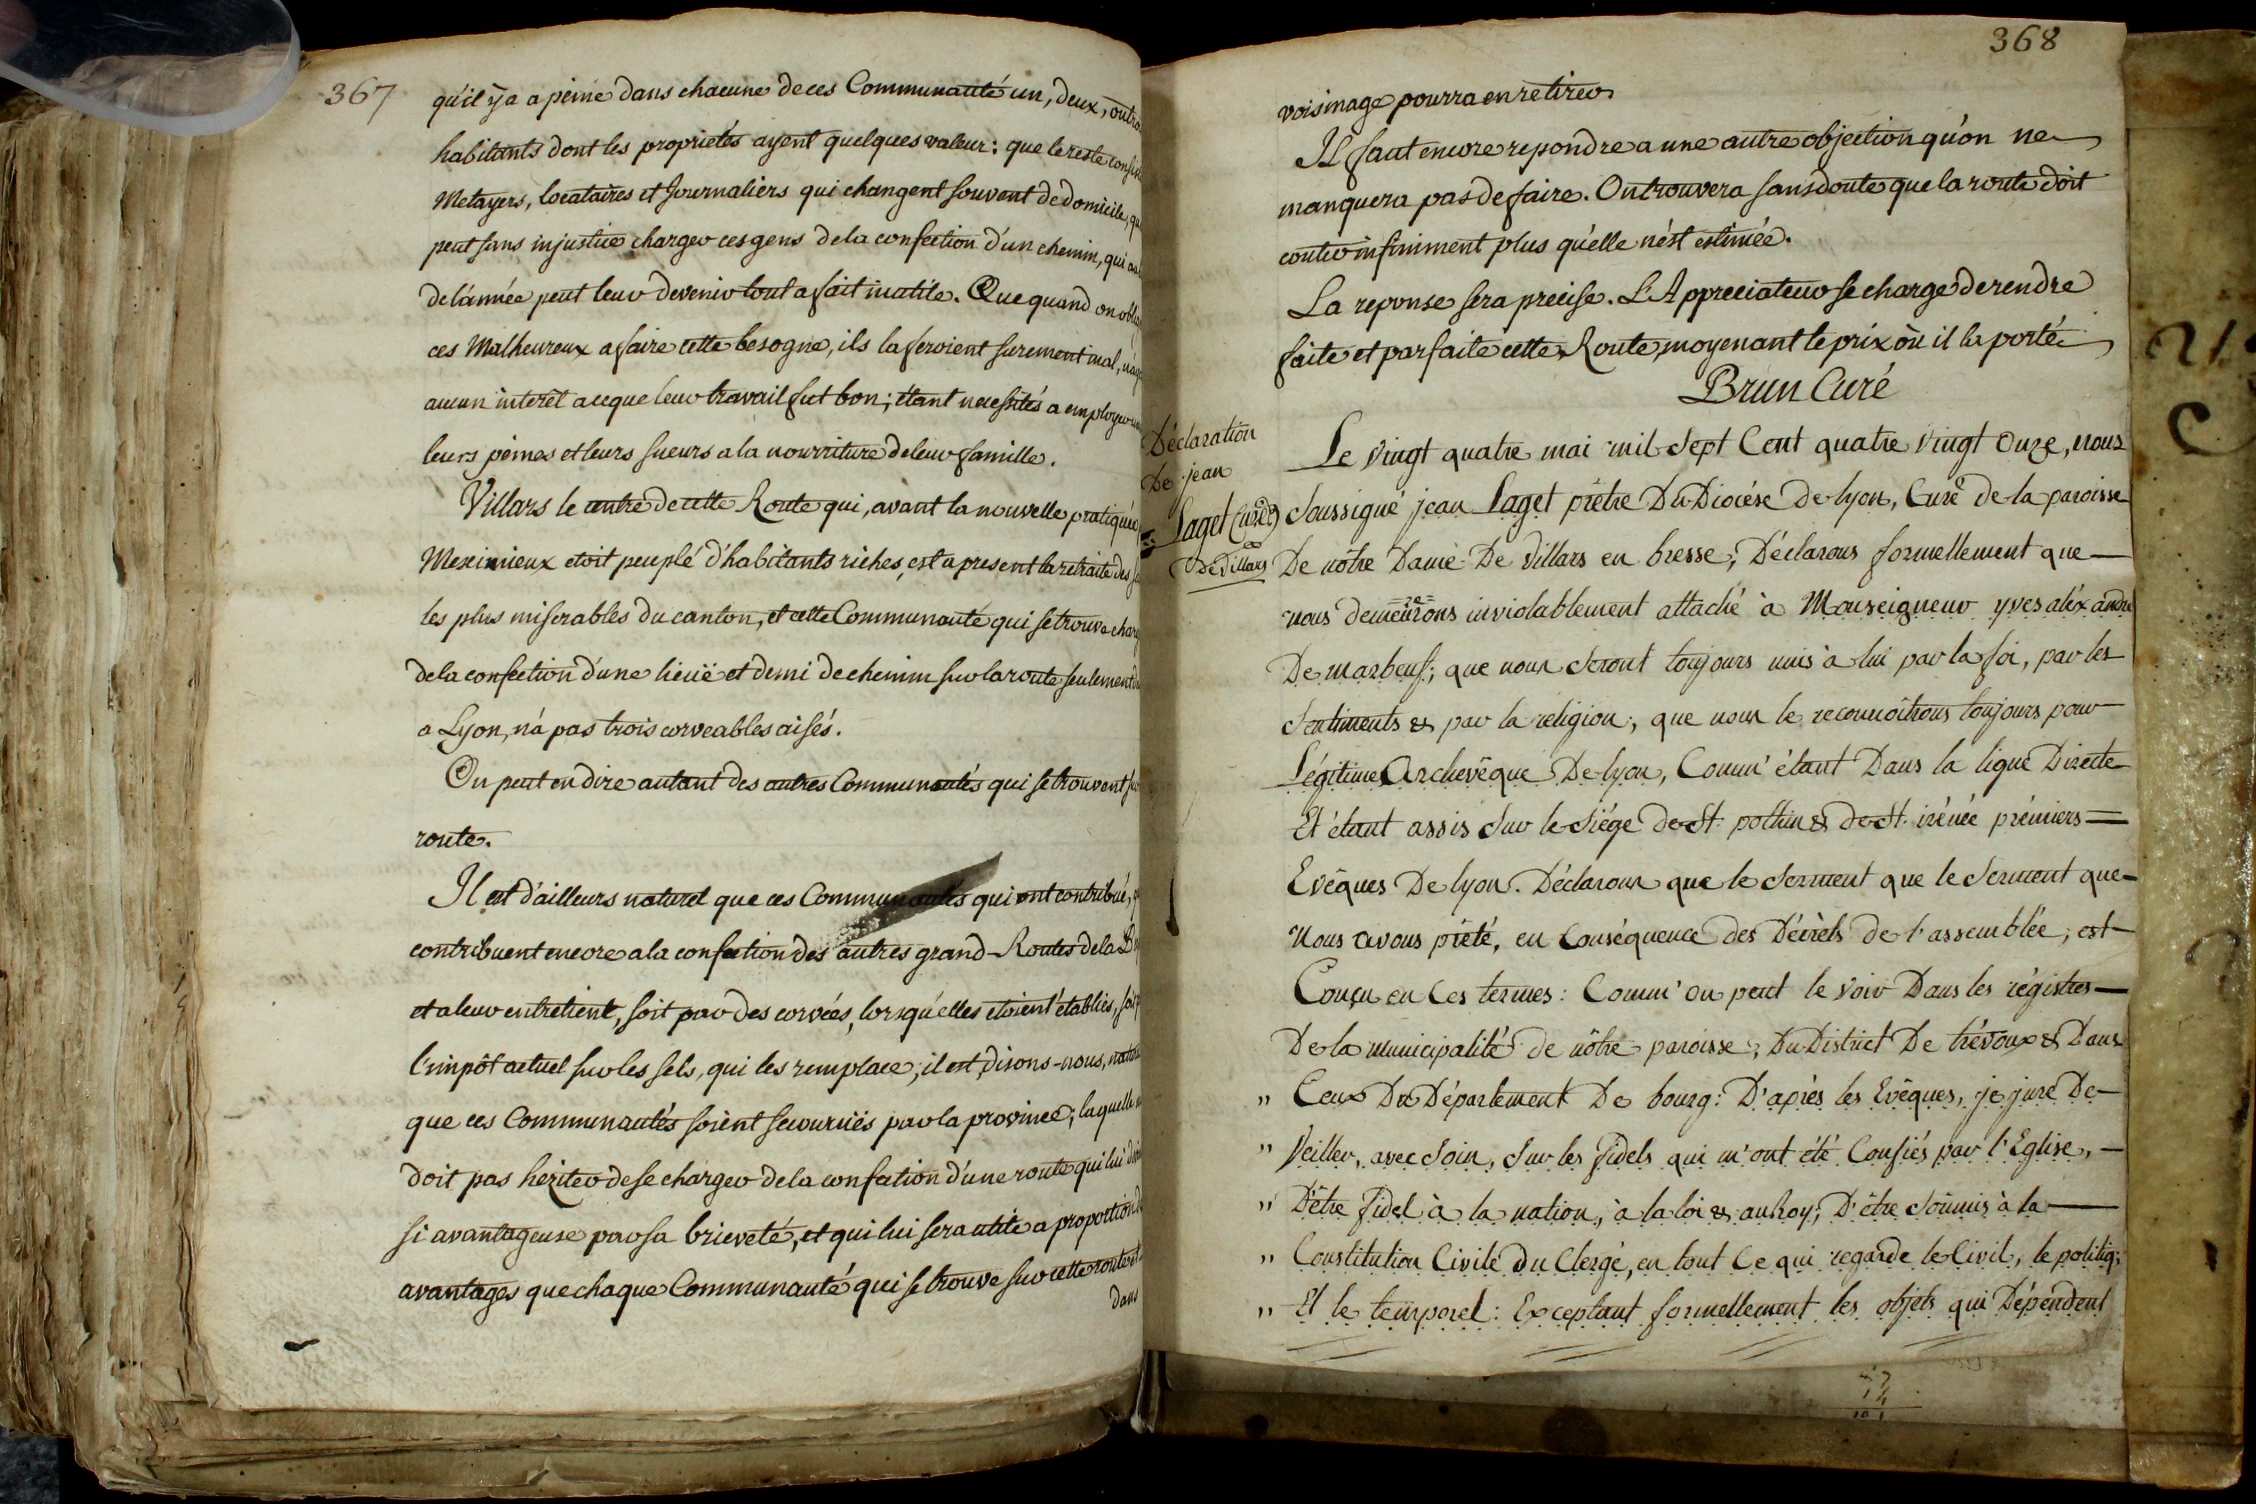 367
qu'il y a a peine dans chacune de ces Communauté un, deux, ou tro
habitants dont les proprietés ayent quelques valeur: que le reste consis
Metayers, locataires et Journaliers qui changent souvent de domicile, qu
peut sans injustice charger ces gens de la confection d'un chemin, qui au
de l'année peut leur devenir tout a fait inutile. Que quand on obli
ces Malheureux a faire cette besogne, ils la feroient surement mal, n'ay
aucun interêt a ce que leur travail fut bon; étant necessités a employer
leurs peines et leurs sueurs a la nourriture de leur famille.
Villars le centre de cette Route qui, avant la nouvelle pratiquée
Meximieux etoit peuplé d'habitants riches, est a present la retraite des
les plus miserables du canton, et cette Communauté qui se trouve charg
de la confection d'une lieuë et demi de chemin sur la route seulement
a Lyon, n'a pas trois corveables aisés.
On peut en dire autant des autres Communautés qui se trouvent sur
route.
Il est d'ailleurs naturel que ces Communautés qui ont contribué,
contribuent encore a la confection des autres grand-Routes de la B
et a leur entretient, soit par des corvées, lorsqu'elles etoient établies, soit
l'impôt actuel sur les sels, qui les remplace; il est, disons-nous, nature
que ces Communautés soient secouruës par la province; laquelle
doit pas hèziter de se charger de la confection d'une route qui lui
si avantageuse par sa brieveté, et qui lui sera utile a proportion
avantages que chaque Communauté qui se trouve sur cette route
dans
368
voisinage pourra en retirer
Il faut encore repondre a une autre objection qu'on ne
manquera pas de faire. On trouvera sans doute que la route doit
couter infiniment plus qu'elle n'est estimée.
La reponse sera precise. L'Appreciateur se charge de rendre
faite et parfaite cette Route, moyenant le prix où il la porté
Brun Curé
Déclaration
De jean
Laget Curé
De Villars
Le vingt quatre mai mil sept Cent quatre vingt onze, nous
soussigné jean Laget prêtre Du Diocése De lyon, Curé de la paroisse
De nôtre Dame De Villars en bresse, Déclarons formellement que
nous demeurerons inviolablement attaché à Monseigneur yves aléxandre
De marbeuf; que nous seront toujours unis à lui par la foi, par les
Sentiments & par la religion; que nous le reconnoîtrons toujours pour
Légitime Archevêque De lyon, Comm' étant Dans la ligne Directe
Et étant assis sur le siége de St. pothin & de St. irénée prémiers
Evêques De lyon. Déclarons que le serment que le serment que
Nous avons prêté, en conséquence des Décrèts de l'assemblée, est
Conçu en Ces termes: Comm' on peut le voir Dans les régistres
De la municipalité de nôtre paroisse, Du District De trévoux & Dans
" Ceux Du Département De bourg: D'après les Evêques, je jure De
" Veiller, avec soin, sur les fidels qui m'ont été Confiés par l'Eglise,
" D'être fidel à la nation, à la loi & au Roy; D'être soûmis à la
" Constitution Civile Du Clergé, en tout Ce qui regarde le Civil, le politiq;
" Et le temporel: Exceptant formellement les objets qui Dépendent